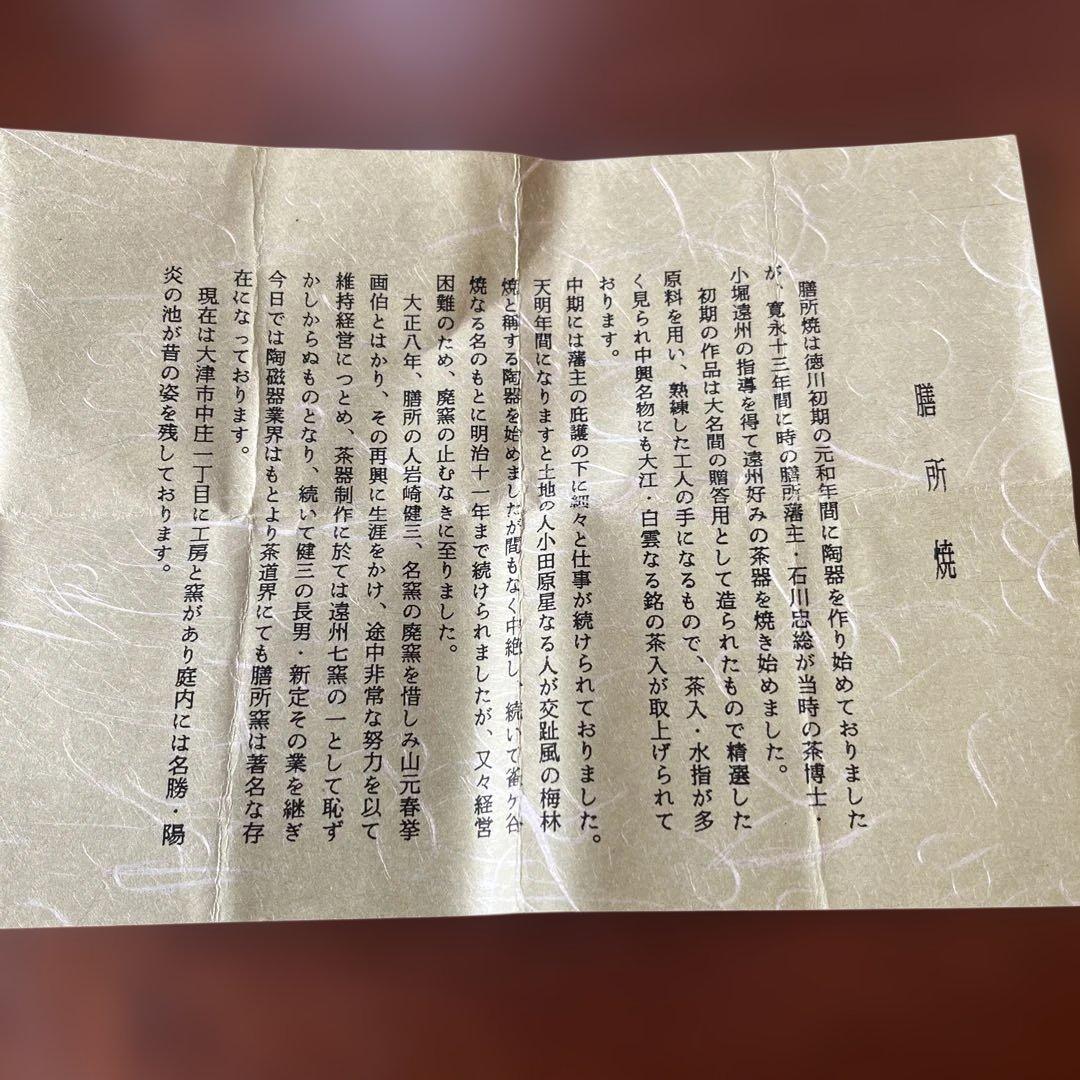 膳所焼
膳所焼は徳川初期の元和年間に陶器を作り始めておりました
が、寛永十三年間に時の膳所藩主・石川忠総が当時の茶博士・
小堀遠州の指導を得て遠州好みの茶器を焼き始めました。
初期の作品は大名間の贈答用として造られたもので精選した
原料を用い、熟練した工人の手になるもので、茶入・水指が多
く見られ中興名物にも大江・白雲なる銘の茶入が取上げられて
おります。
中期には藩主の庇護の下に細々と仕事が続けられておりました。
天明年間になりますと土地の人小田原星なる人が交趾風の梅林
焼と称する陶器を始めましたが間もなく中絶し、続いて雀ケ谷
焼なる名のもとに明治十一年まで続けられましたが、又々経営
困難のため、廃窯の止むなきに至りました。
大正八年、膳所の人岩崎健三、名窯の廃窯を惜しみ山元春挙
画伯とはかり、その再興に生涯をかけ、途中非常な努力を以て
維持経営につとめ、茶器制作に於ては遠州七窯の一として恥ず
かしからぬものとなり、続いて健三の長男・新定その業を継ぎ
今日では陶磁器業界はもとより茶道界にても膳所窯は著名な存
在になっております。
現在は大津市中庄一丁目に工房と窯があり庭内には名勝・陽
炎の池が昔の姿を残しております。